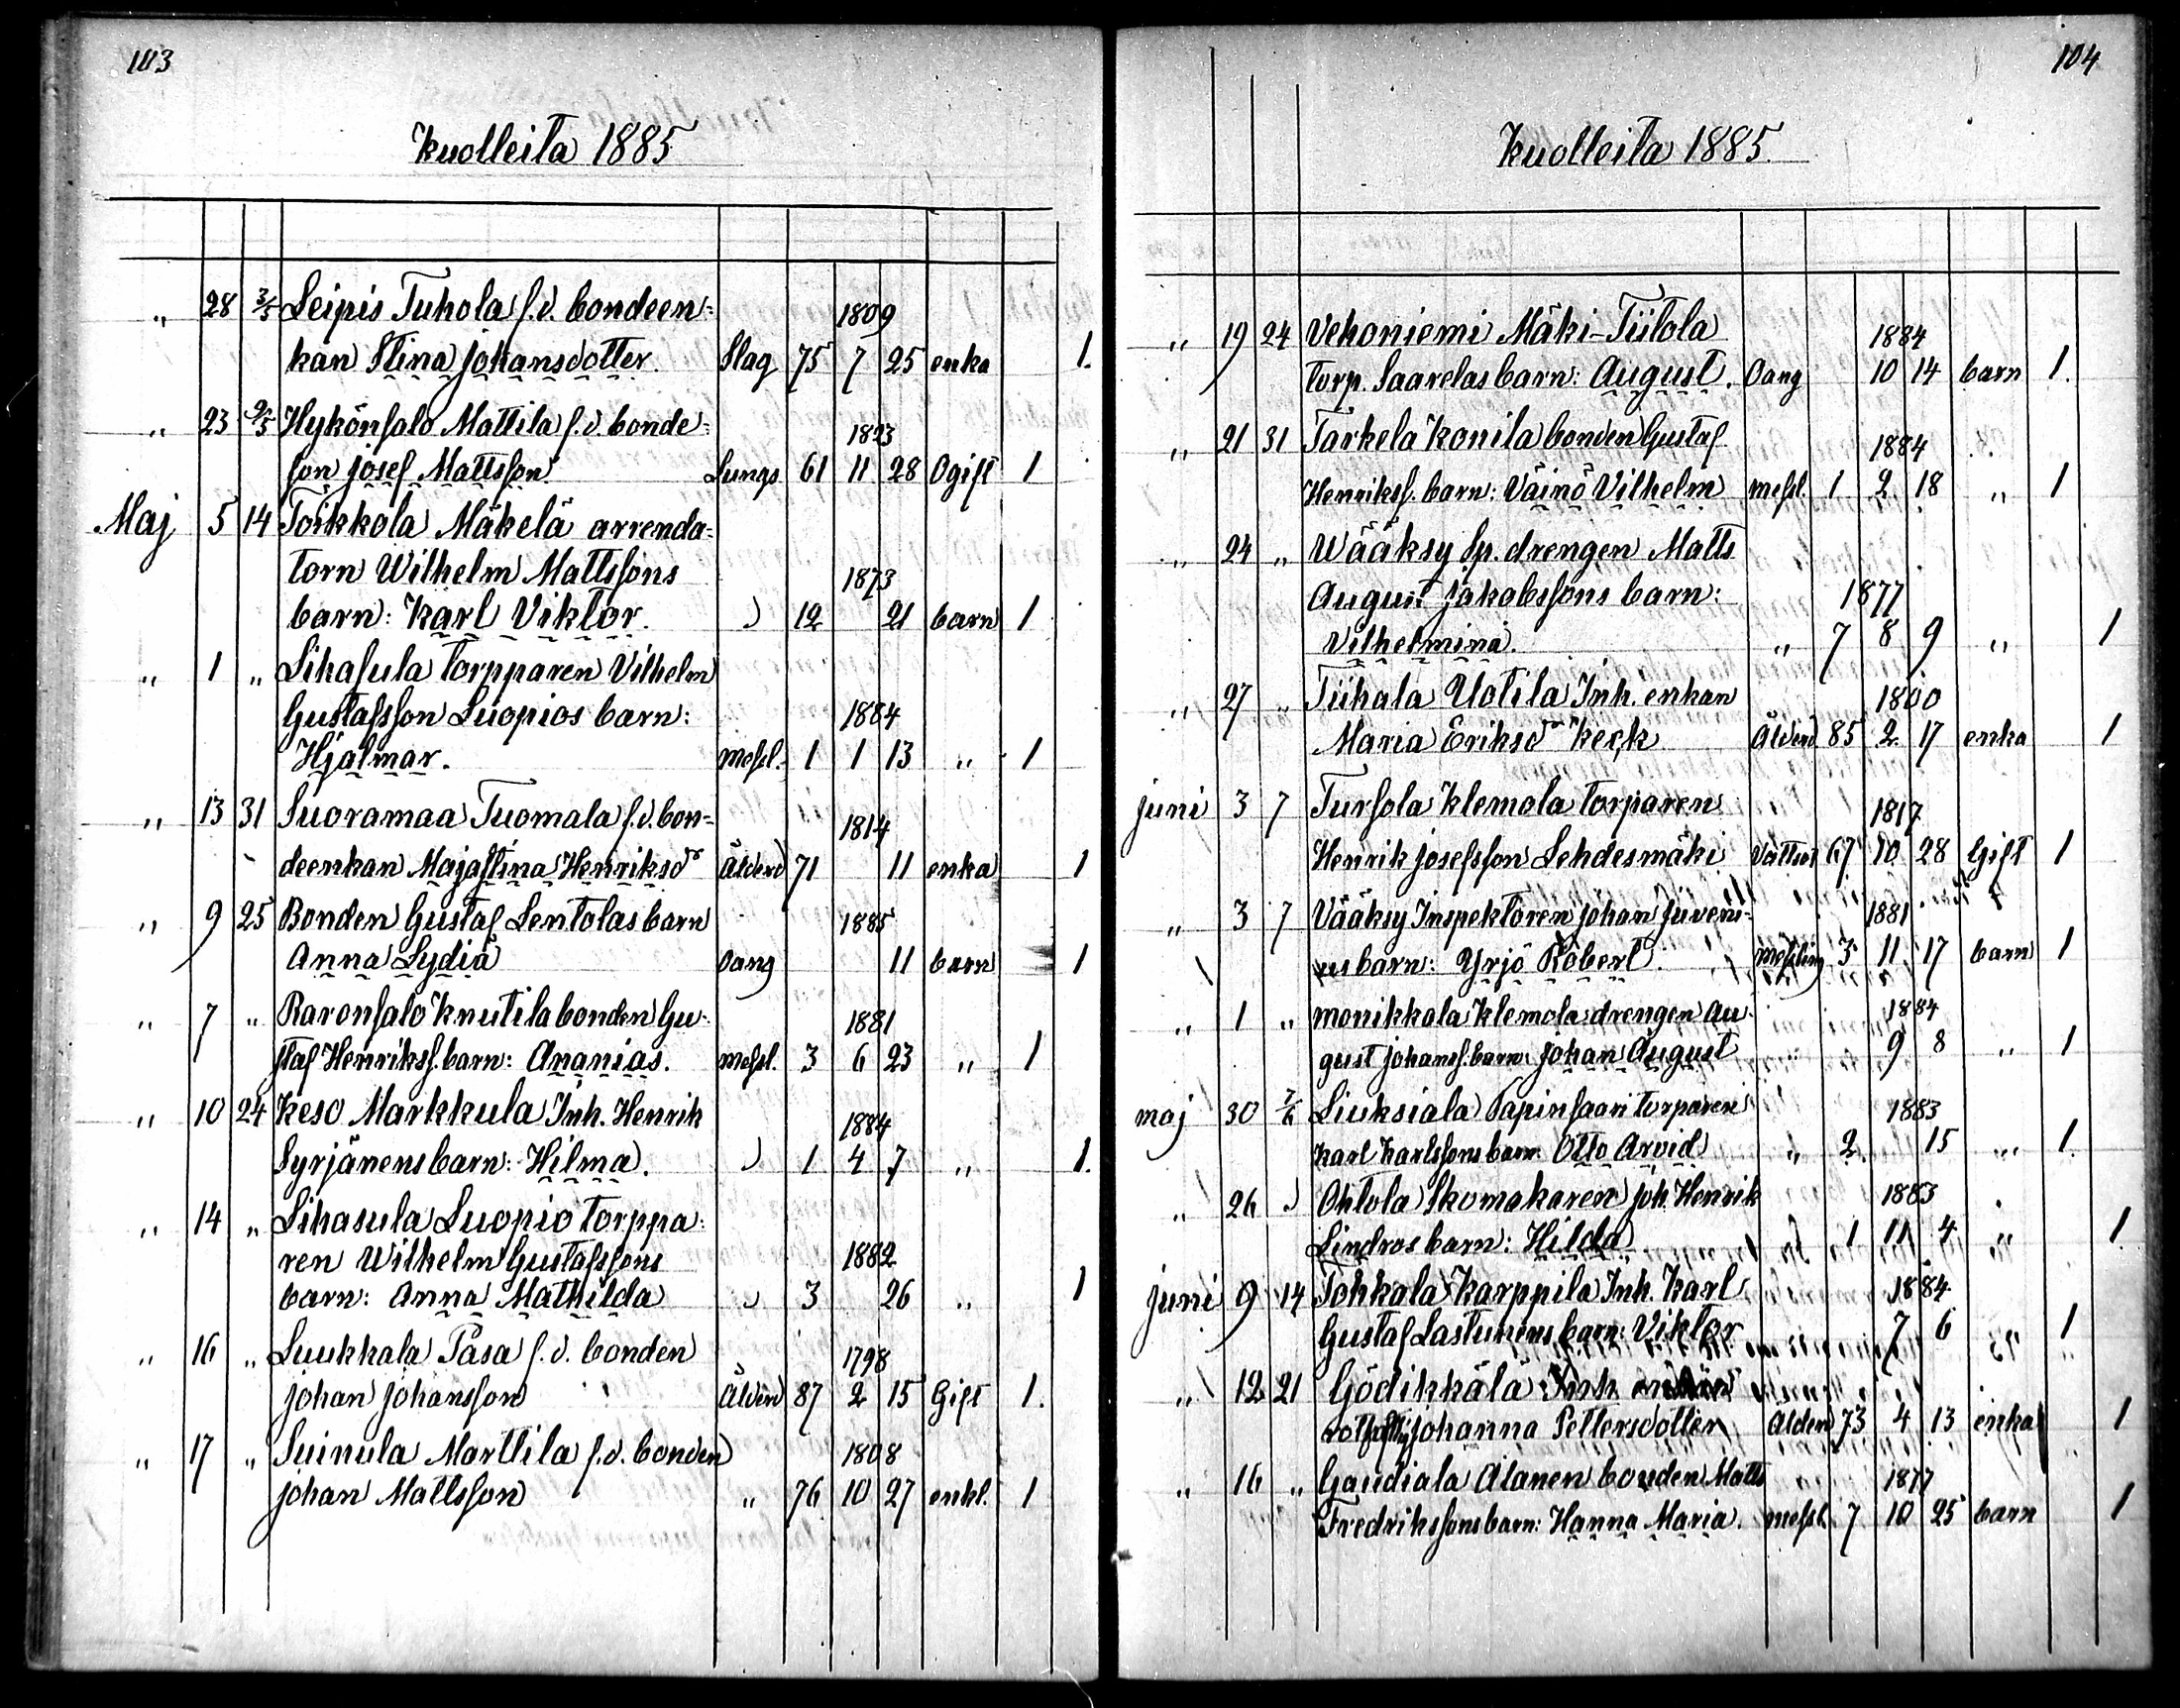 103
Kuolleita 1885
„ 28 3/5 Leipis Tuhola f.d. bondeen= 1809
kan Stina Johansdotter. Slag 75 7 25 enka 1.
„ 23 9/5 Hykönsalo Mattila f.d. bonde= 1823
son Josef Mattsson Lungs 61 11 28 Ogift 1
Maj 5 14 Toikkola Mäkelä arrenda=
torn Wilhelm Mattssons 1873
barn: Karl Viktor. „ 12 21 barn 1
„ 1 „ Lihasula torpparen Vilhelm
Gustafsson Luopios barn: 1884
Hjalmar. messl. 1 1 13 „ 1
„ 13 31 Suoramaa Tuomala f.d. bon= 1814
deenkan Majastina Henriksdr Ålderd 71 11 enka 1
„ 9 25 Bonden Gustaf Lentolas barn 1885
Anna Lydia Oang 11 barn 1
„ 7 „ Raronsalo Knutila bonden Gu= 1881
staf Henrikss. barn: Ananias. messl. 3 6 23 „ 1
„ 10 24 Keso Markkula Inh. Henrik 1884
Syrjänens barn: Hilma. „ 1 4 7 „ 1.
„ 14 „ Lihasula Luopio torppa=
ren Wilhelm Gustafssons 1882
barn: Anna Mathilda „ 3 26 „ 1
„ 16 „ Luukkala Pasa f.d. bonden 1798
Johan Johansson Ålderd 87 2 15 Gift 1.
„ 17 „ Suinula Marttila f.d. bonden 1808
Johan Mattsson „ 76 10 27 enkl. 1
104
Kuolleita 1885.
„ 19 24 Vehoniemi Mäki-Tiitola 1884
torp. Saarelas barn: August. Oang 10 14 barn 1.
„ 21 31 Tarkela Konila bonden Gustaf 1884
Henrikss. barn: Väinö Vilhelm messl. 1 2 18 „ 1
„ 24 „ Wääksy Sp. drengen Matts
August Jakobssons barn: 1877
Vilhelmina. „ 7 8 9 „ 1
„ 27 „ Tiihala Uotila Inh. enkan 1800
Maria Eriksdr Keck Ålderd 85 2 17 enka 1
juni 3 7 Tursola Klemola torparen 1817
Henrik Josefsson Lehdesmäki Vattsot 67 10 28 Gift 1
„ 3 7 Vääksy Inspektoren Johan Juveni= 1881
us barn: Yrjö Robert. messling 3 11 17 barn 1
„ 1 „ Monikkala Klemola drengen Au= 1884
gust Johanss. barn: Johan August 9 8 „ 1
maj 30 7/6 Liuksiala Papinsaari torparen 1883
Karl Karlssons barn: Otto Arvid „ 2 15 „ 1.
„ 26 „ Ohtola Skomakaren Joh. Henrik 1883
Lindros barn: Hilda 1 11 4 „ 1.
juni 9 14 Tohkala Karppila Inh. Karl 1884
Gustaf Lastunens barn: Viktor 7 6 1
„ 12 21 Gödikkälä Inh.
Johanna Pettersdotter Ålderd 73 4 13 enka 1
„ 16 „ Gaudiala Alanen bonden Matts 1877
Fredrikssons barn: Hanna Maria. messl. 7 10 25 barn 1